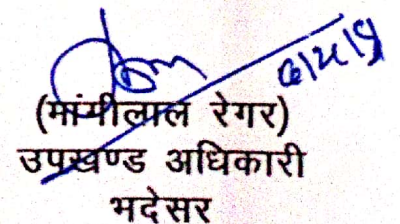 (मांगीलाल रेगर)
उपखण्ड अधिकारी
भदेसर